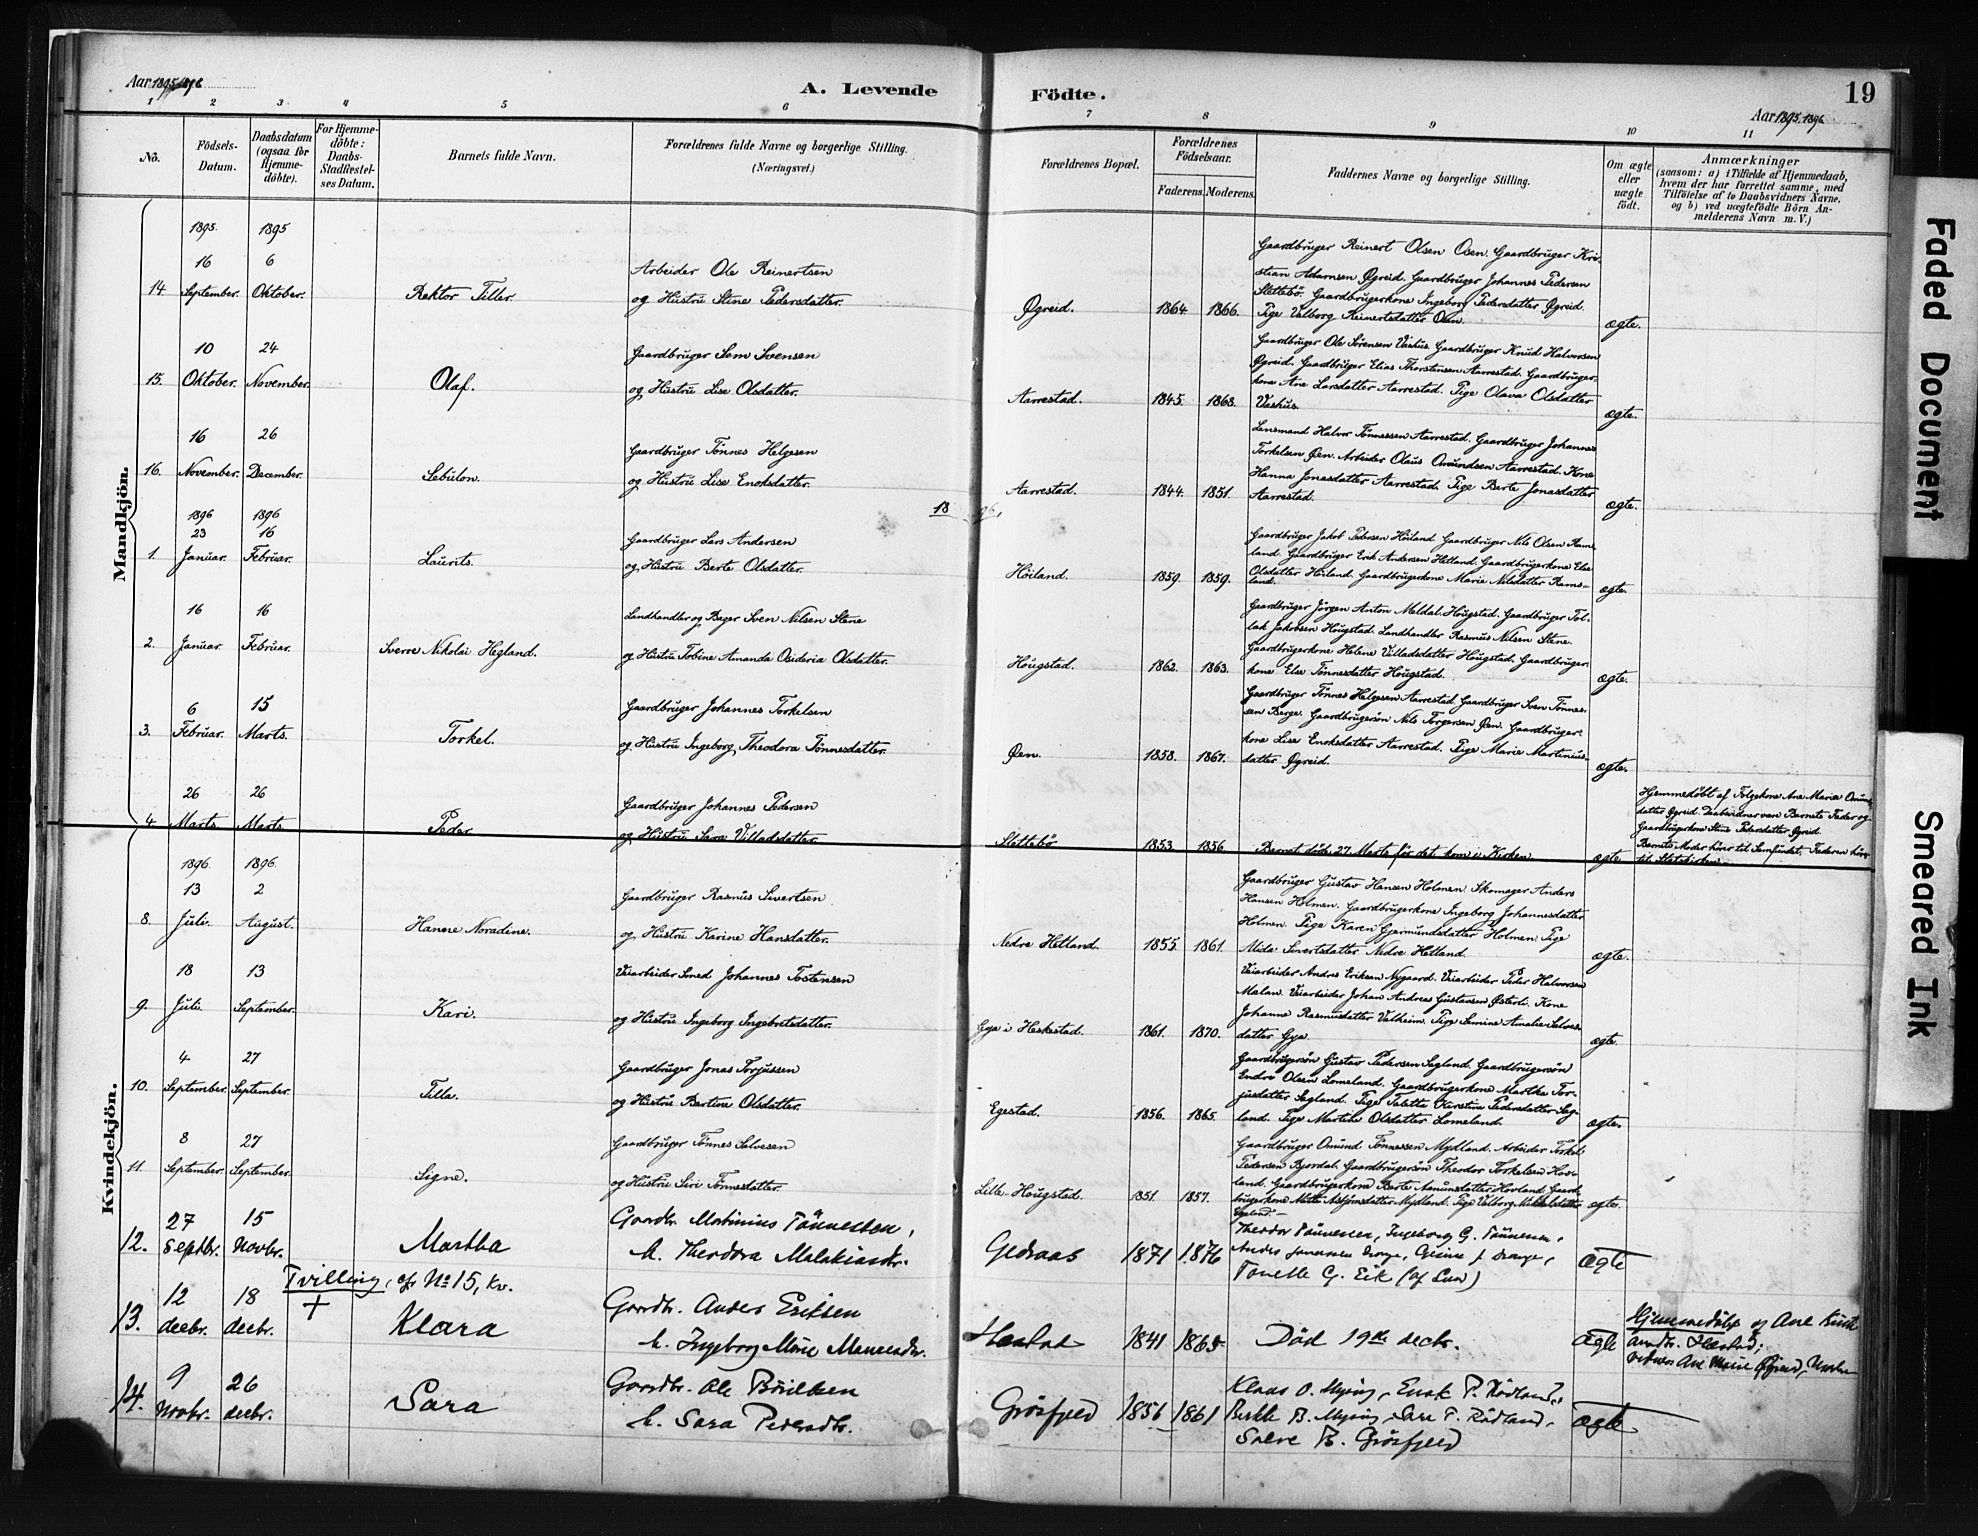 Aar 1895-1896
A. Levende Födte.
Aar 1895. 1896
19
1 2 3 4 5 6 7 8 9 10 11
No.
Födsels-Datum.
Daabsdatum (ogsaa for Hjemme-döbte).
For Hjemme-döbte: Daabs-Stadfæstel-ses Datum.
Barnets fulde Navn.
Forældrenes fulde Navne og borgerlige Stilling.
(Næringsvei.)
Forældrenes Bopæl.
Forældrenes Födselsaar.
Faderens. Moderens.
Faddernes Navne og borgerlige Stilling.
Om ægte eller uægte födt.
Anmærkninger
(saasom: a) i Tilfælde af Hjemmedaab,
hvem der har forrettet samme, med
Tilföielse af to Daabsvidners Navne.
og b) ved uægtefödte Börn An-
melderens Navn m. V.)
Mandkjön.
1895. 1895
14. 16 September. 6 Oktober. Rektor Tiller.
Arbeider Ole Reinertsen
og Hustru Stine Pedersdatter.
Øgreid. 1864. 1866.
Gaardbruger Reinert Olsen Osen. Gaardbruger Kri-
stian Adamsen Øgreid. Gaardbruger Johannes Pedersen
Slettebö. Gaardbrugerkone Ingeborg Pedersdatter Øgreid.
Pige Valborg Reinertsdatter Osen.
ægte.
15. 10 Oktober. 24 November. Olaf.
Gaardbruger Sem Svensen
og Hustru Lise Olsdatter.
Aarrestad. 1845. 1868.
Gaardbruger Ole Sørensen Vashus. Gaardbruger Knud Halvorsen
Øgreid. Gaardbruger Elias Thorsteinsen Aarrestad. Gaardbruger-
kone Ane Larsdatter Aarrestad. Pige Olava Olsdatter
Vashus.
ægte.
16. 16 November. 26 December. Sebulon.
Gaardbruger Tönnes Helgesen
og Hustru Lise Enoksdatter.
Aarrestad. 1844. 1851.
Lensmand Halvor Tönnessen Aarrestad. Gaardbruger Johannes
Torkelsen Øen. Arbeider Olaus Omundsen Aarrestad. Kone
Hanna Jonasdatter Aarrestad. Pige Berte Jonasdatter
Aarrestad.
ægte.
1896 1896
1896.
1. 23 Januar. 16 Februar. Laurits.
Gaardbruger Lars Andersen
og Hustru Berte Olsdatter.
Höiland. 1859. 1859.
Gaardbruger Jakob Pedersen Höiland. Gaardbruger Nils Olsen Rams-
land. Gaardbruger Erik Andersen Hetland. Gaardbrugerkone Else
Olsdatter Höiland. Gaardbrugerkone Marie Nilsdatter Rams-
land.
ægte.
2. 16 Januar. 16 Februar. Sverre Nikolai Hegland.
Landhandler og Bager Sven Nilsen Stene
og Hustru Tobine Amanda Osideria Olsdatter.
Hougstad. 1862. 1863.
Gaardbruger Jörgen Anton Meldal. Hougstad. Gaardbruger Tol-
lak Jakobsen Hougstad. Landhandler Rasmus Nilsen Stene.
Gaardbrugerkone Helene Villadsdatter Hougstad. Gaardbruger-
kone Else Tönnesdatter Hougstad.
ægte.
3. 6 Februar. 15 Marts. Torkel.
Gaardbruger Johannes Torkelsen
og Hustru Ingeborg Theodora Tönnesdatter.
Øen. 1858. 1867.
Gaardbruger Tönnes Helgesen Aarrestad. Gaardbruger Sven Tönnes-
sen Berge. Gaardbrugersön Nils Torgersen Øen. Gaardbruger-
kone Lise Enoksdatter Aarrestad. Pige Marie Martinius-
datter Øgreid.
ægte.
4. 26 Marts. 26 Marts. Peder.
Gaardbruger Johannes Pedersen
og Hustru Sara Villadsdatter.
Slettebö 1853. 1856.
Barnet döde 27 Marts för det kom i Kirken.
ægte.
Hjemmedöbt af Folgekone Ane Marie Omunds-
datter Øgreid. Daabsvidner var Barnets Fader og
Gaardbrugerkone Stine Pedersdatter Øgreid.
Barnets Moder hörer til Samfundet. Faderen hörer
til Statskirken.
Kvindekjön.
1896. 1896.
8. 13 Juli. 2 August. Hanne Noradine.
Gaardbruger Rasmus Sivertsen
og Hustru Karine Hansdatter.
Nedre Hetland. 1855 1861
Gaardbruger Gustav Hansen Holmen. Skomager Anders
Hansen Holmen. Gaardbrugerkone Ingeborg Johannesdatter
Holmen. Pige Karen Gjermundsdatter Holmen. Pige
Mida Sivertsdatter Nedre Hetland.
ægte.
9. 18 Juli. 13 September. Kari.
Veiarbeider Smed Johannes Tostensen
og Hustru Ingeborg Ingebretsdatter.
Gya i Heskestad. 1861. 1870.
Veiarbeider Andres Eriksen Nygaard. Veiarbeider Peder Halvorsen
Malan. Veiarbeider Johan Andreas Gustavsen Østerli. Kone
Johanne Rasmusdatter Valheim. Pige Semine Amalie Salves-
datter Gya.
ægte.
10. 4 September. 27 September. Tilla.
Gaardbruger Jonas Torjussen
og Hustru Bertine Olsdatter.
Egestad. 1856. 1865.
Gaardbrugersön Gustav Pedersen Segland. Gaardbrugersön
Endre Olsen Lomeland. Gaardbrugerkone Martha Tor-
jusdatter Segland. Pige Taletta Kirstine Pedersdatter Seg-
land. Pige Marthe Olsdatter Lomeland.
ægte.
11. 8 September. 27 September. Signe.
Gaardbruger Tönnes Salvesen
og Hustru Siri Tönnesdatter.
Lille-Hougstad. 1851. 1857.
Gaardbruger Omund Tönnessen Mydland. Arbeider Torkel
Pedersen Bjordal. Gaardbrugersön Theodor Torkelsen Hov-
land. Gaardbrugerkone Berte Aamundsdatter Hovland. Gaard-
brugerkone Mette Asbjörnsdatter Mydland. Pige Valborg Mikkelsdatter
ægte.
12. 27 Septbr. 15 Novbr. Martha
Gaardbr. Martinius Tönnessen,
h. Theodora Malakiasdtr.
Gedraas 1871 1876
Theodor Tönnesen, Ingeborg G. Tönnesen,
Tonette G. Eik (af Lund)
Ægte
Tvilling, cfr No 15, Kv.
13. 12 decbr. 18 decbr. + Klara
Gaardbr. Anders Eriksen
h. Ingeborg Marie Monsesdtr.
Hæstad 1841 1865
Död 19de decbr.
Ægte
Hjemmedöbt af Ane Kirstine
Amdtr. Hæstad;
vidner: Ane Marie Øgreid,
14. 9 Novbr. 26 decbr. Sara
Gaardbr. Ole Börildsen
h. Sara Pedersdtr.
Grösfjeld 1856 1861
Klaas O. Myring, Enok P. Rödland,
Berthe B. Myring, Sara P. Rödland,
Salve B. Grösfjeld
Ægte
Faded Document
Smeared Ink